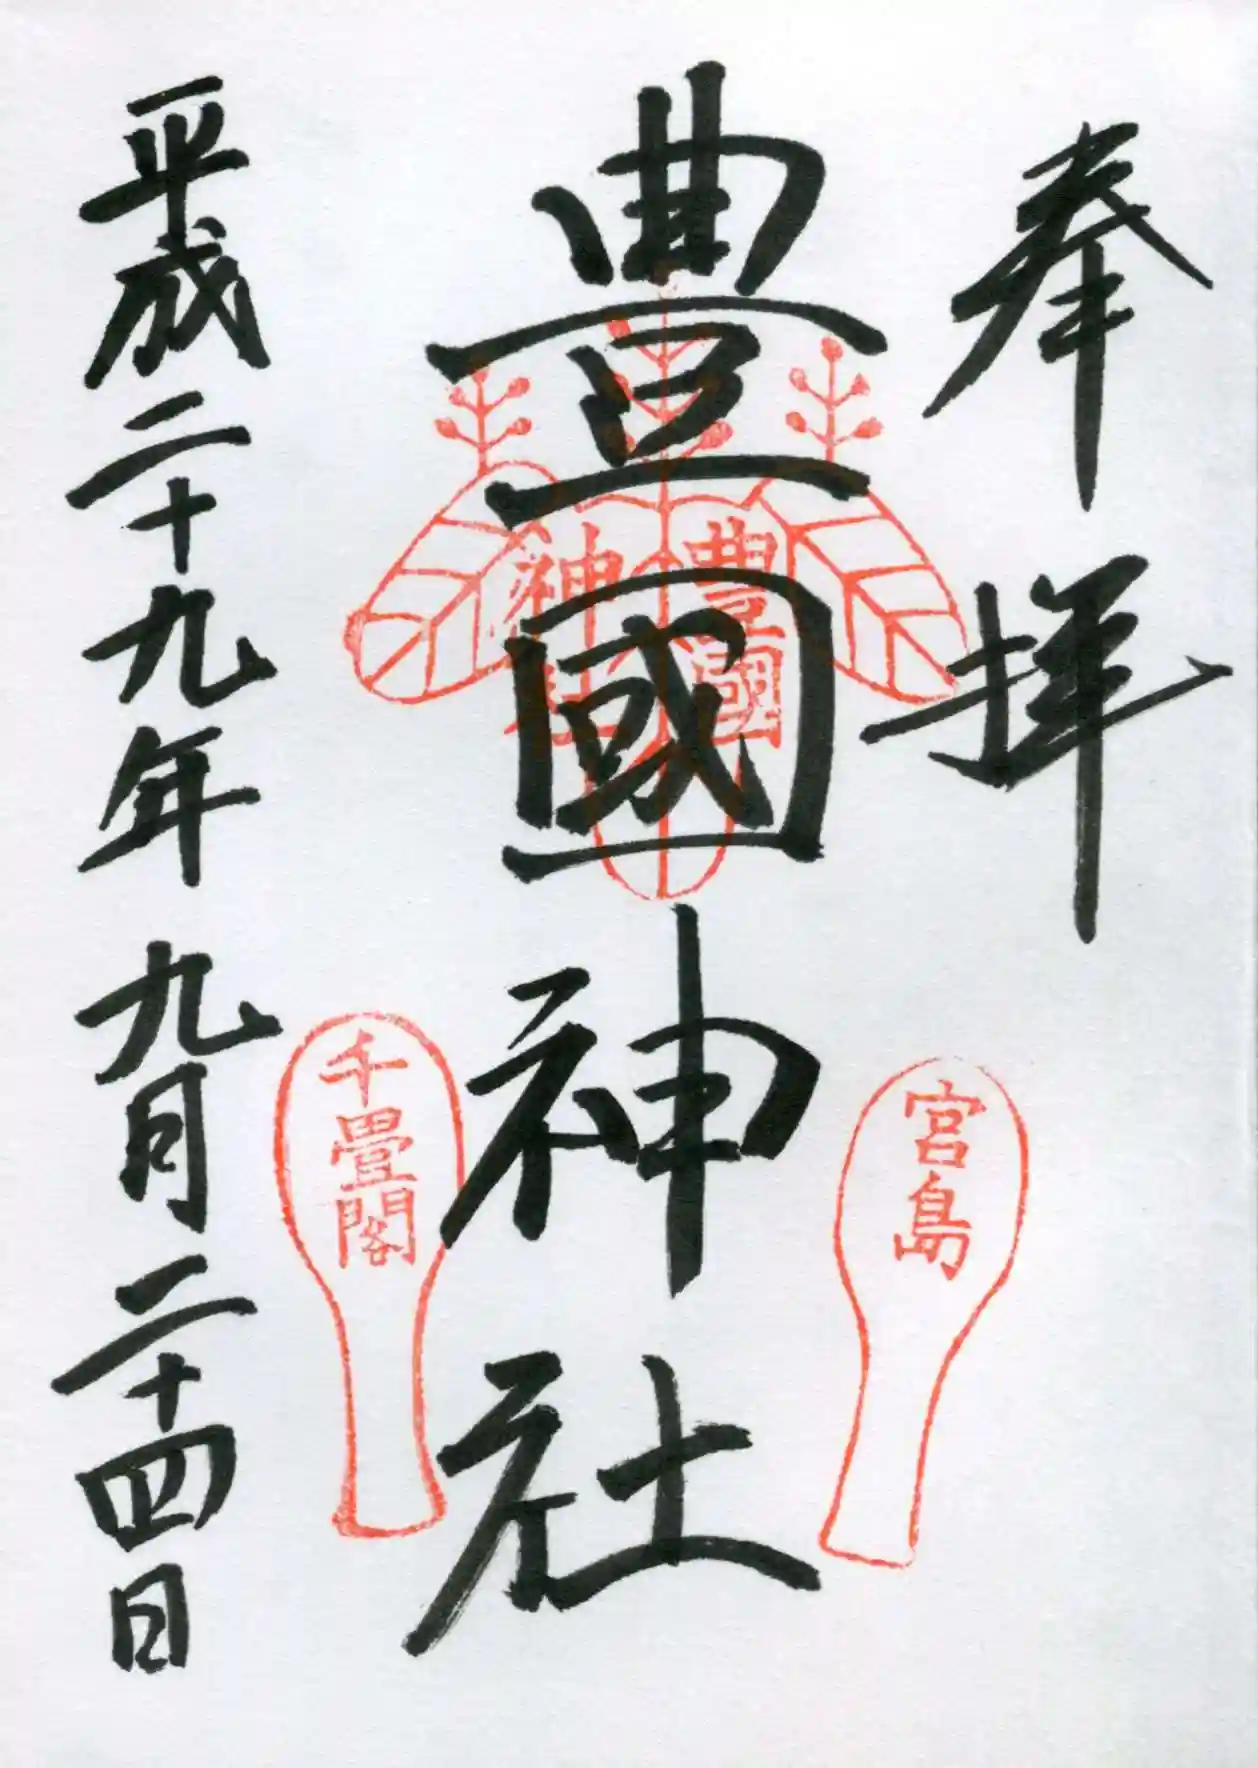 奉拝
宮島
豊國神社
豊國
神社
千畳閣
平成二十九年九月二十四日